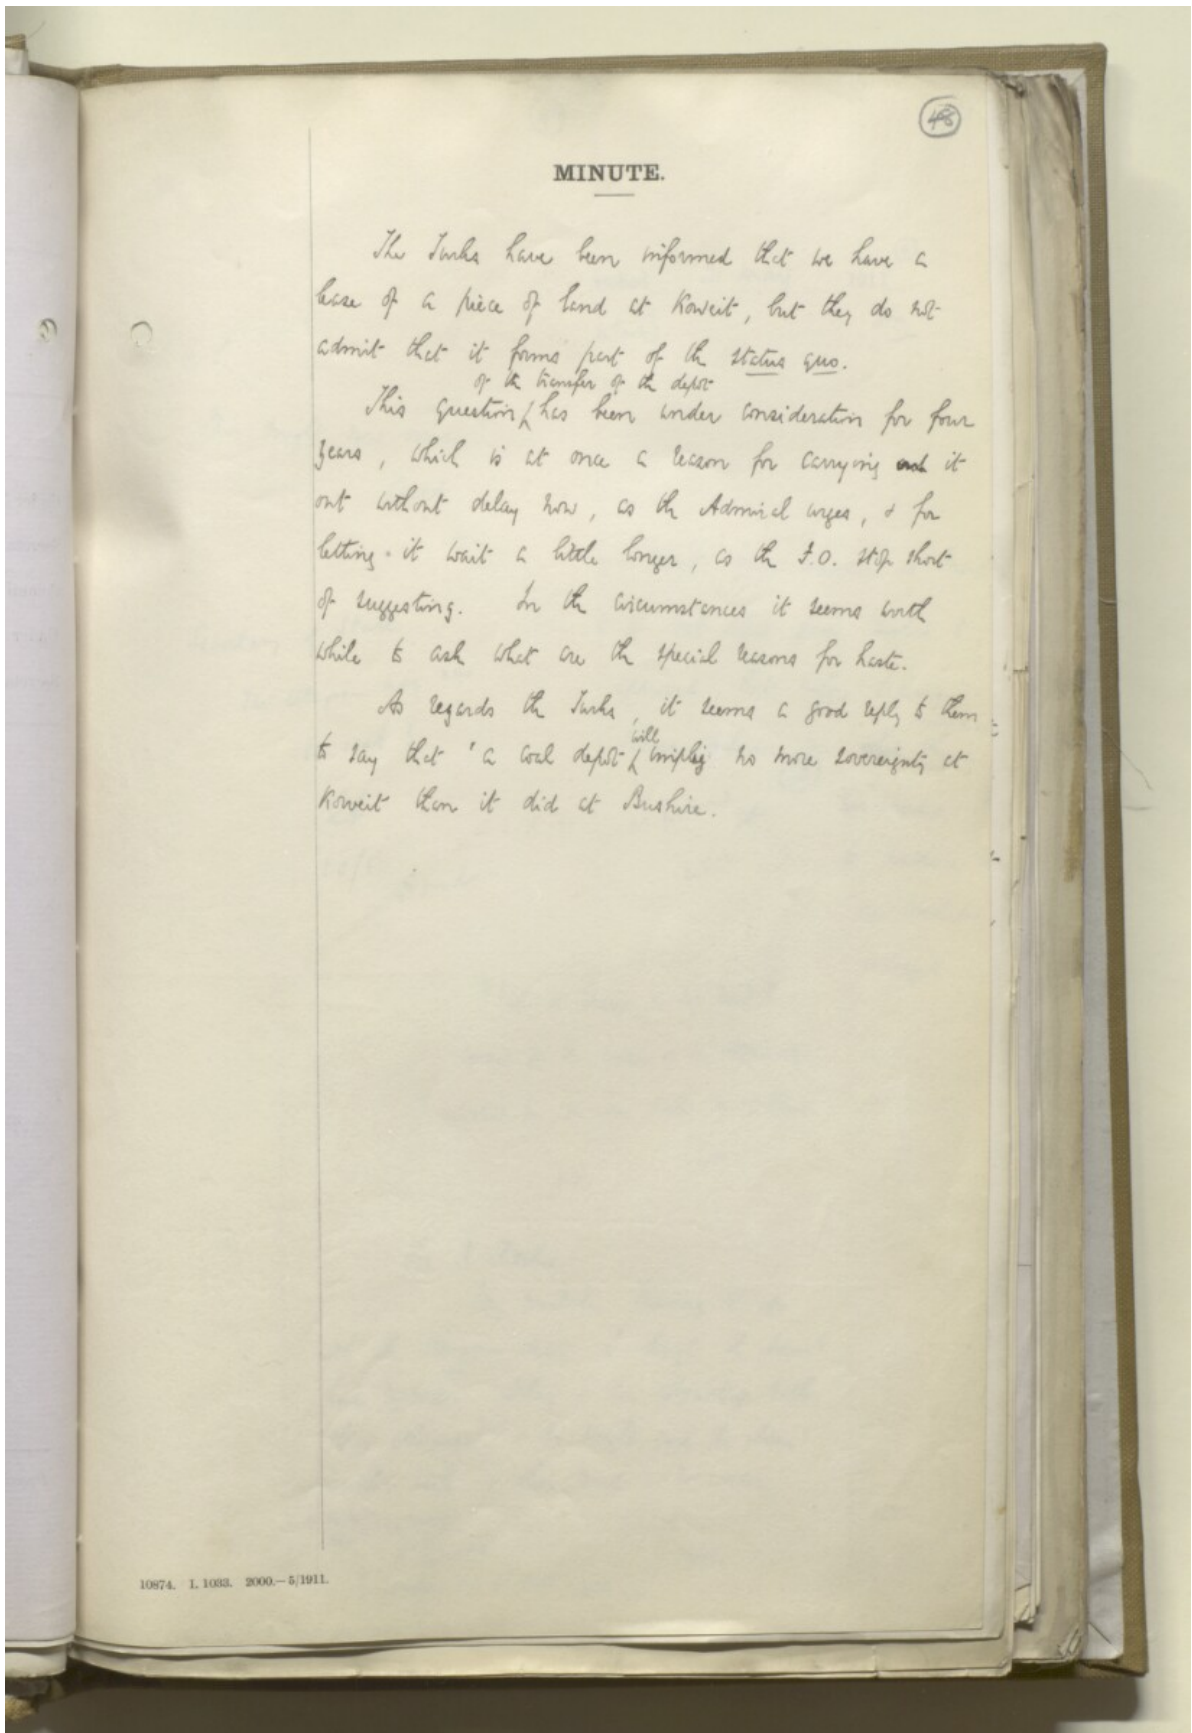 48
MINUTE.
The Turks have been informed that we have a
lease of a piece of land at Koweit, but they do not
admit that it forms part of the status quo.
of the transfer of the depot
This question has been under consideration for four
years, which is at once a reason for carrying it
out without delay now, as the Admiral urges, & for
letting it wait a little longer, as the F.O. stop short
of suggesting. In the circumstances it seems worth
while to ask what are the special reasons for haste.
As regards the Turks, it seems a good reply to them
will
to say that 'a coal depot imply no more sovereignty at
Koweit than it did at Bushire.
10874. I. 1033. 2000.—5/1911.